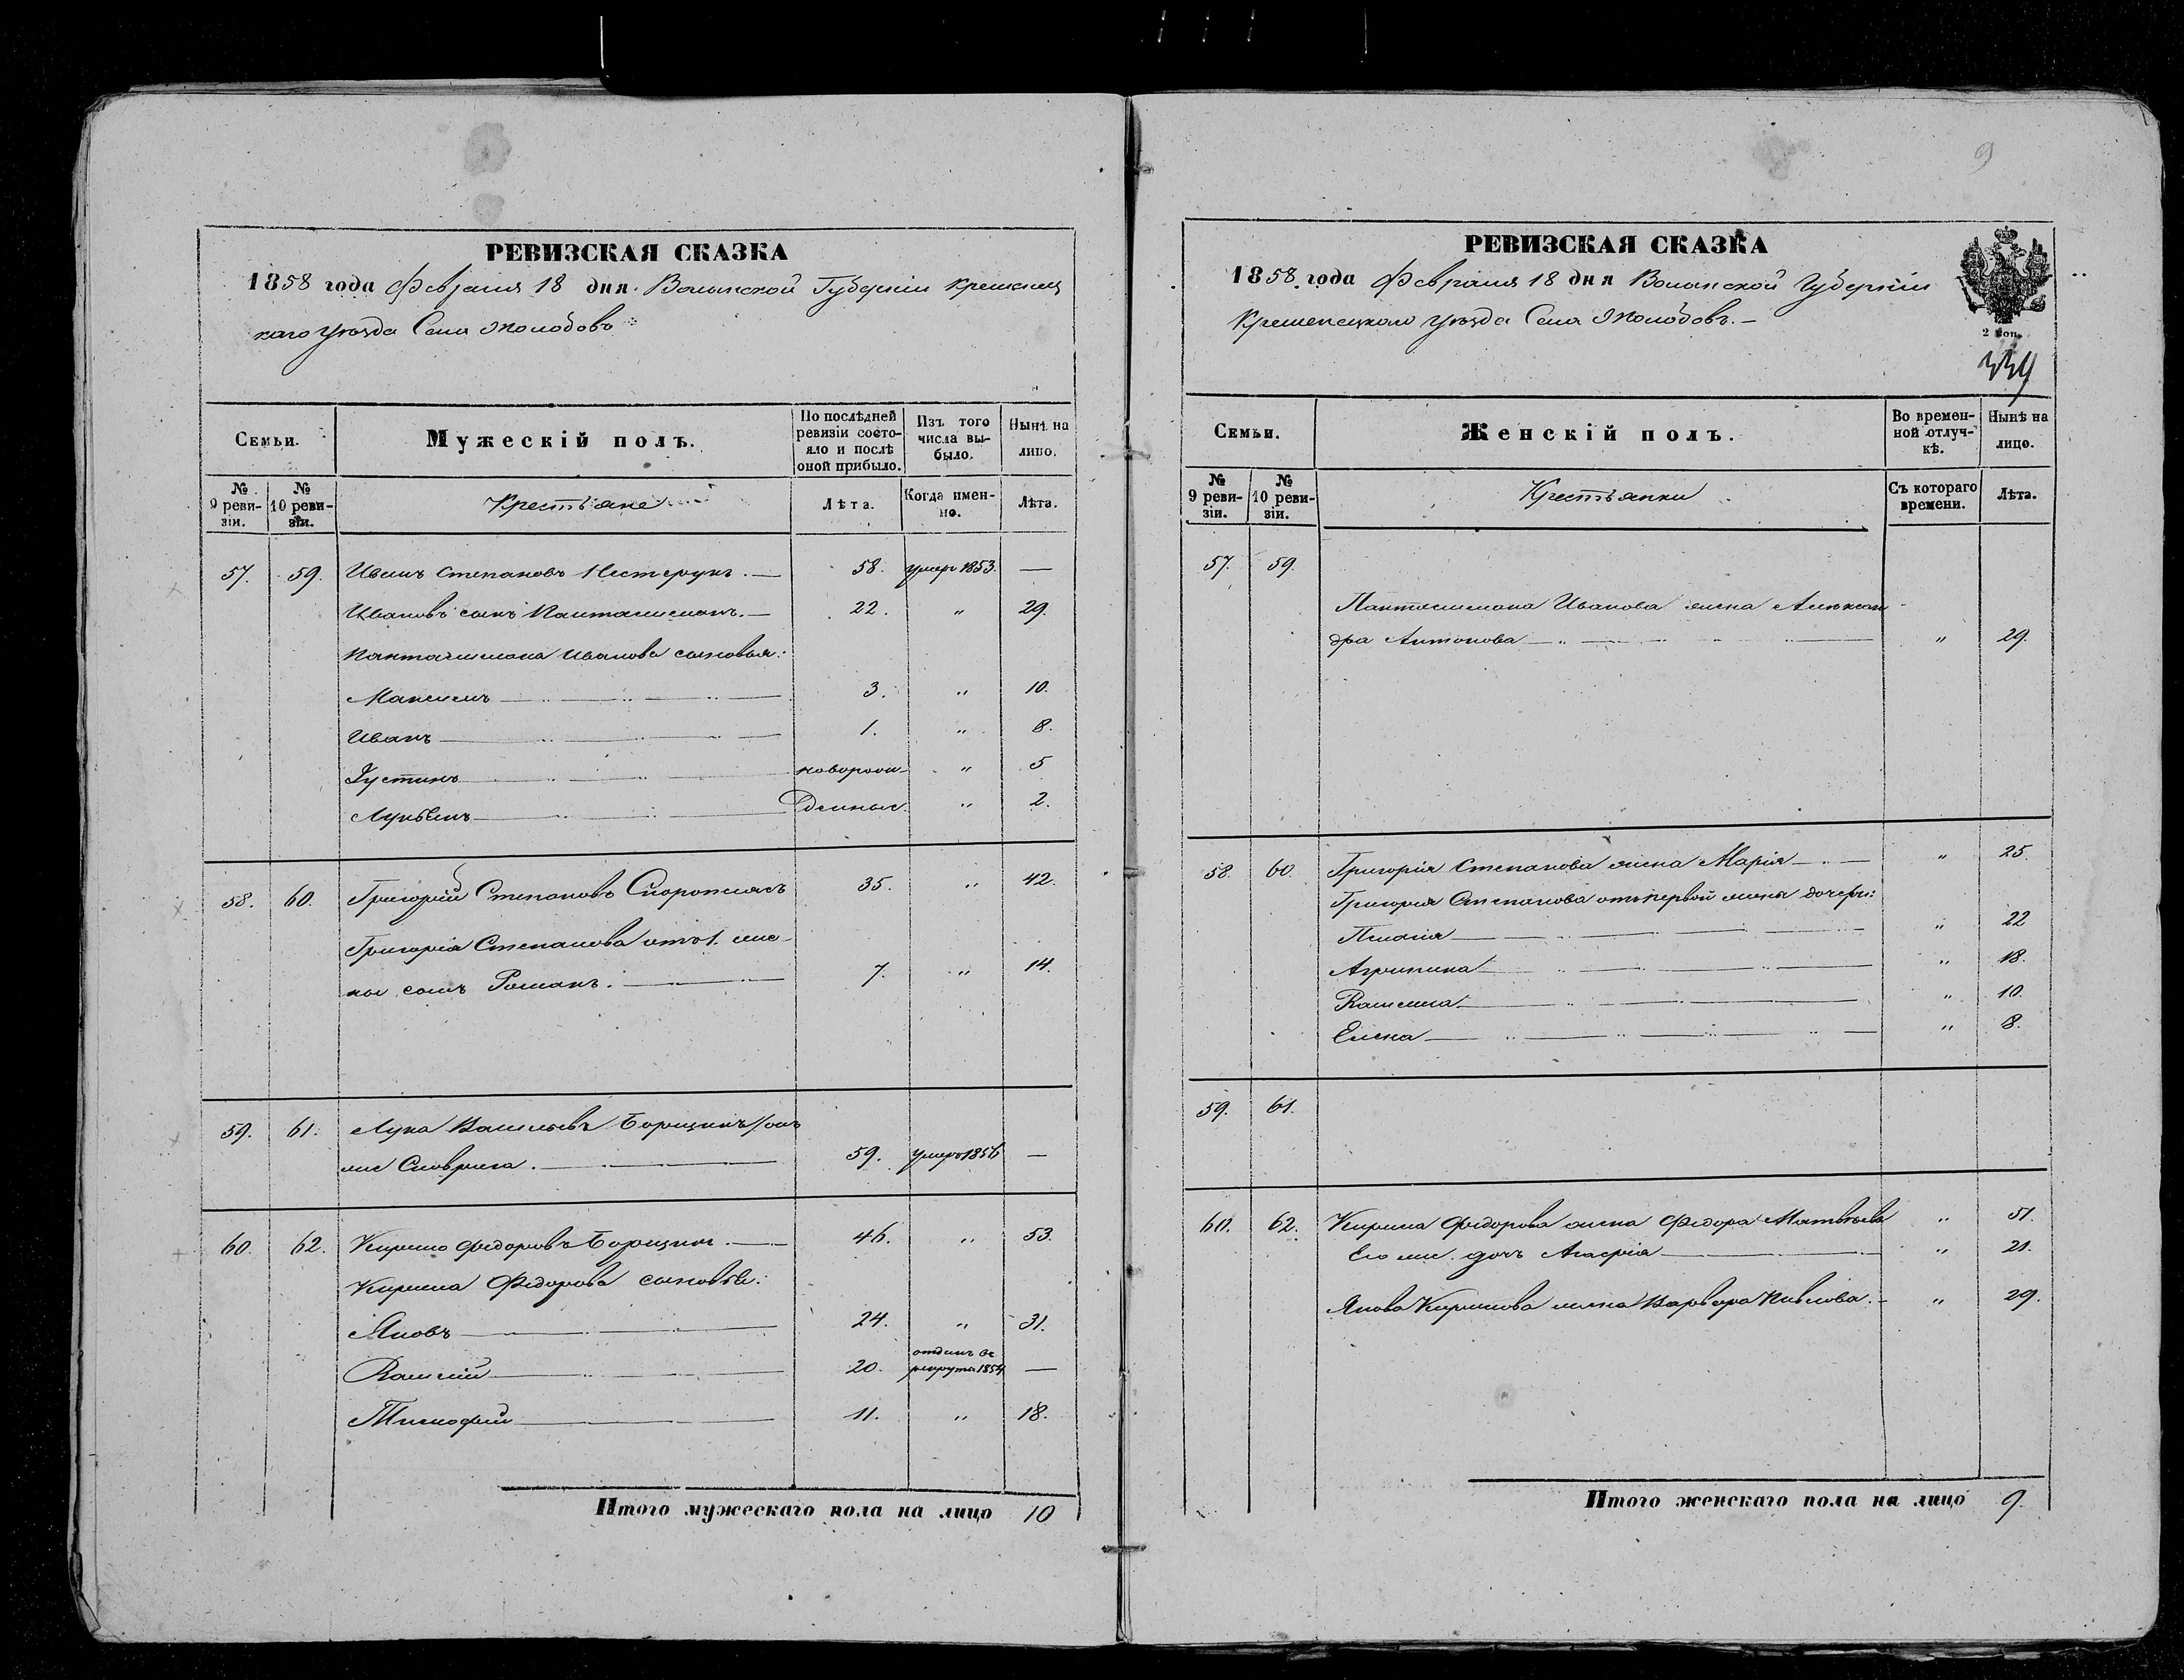 РЕВИЗСКАЯ СКАЗКА
1858 года Февраля 18 дня Волынской Губерніи Кременец
каго Уѣзда Села Жолобовъ
Семьи.
Мужескій полъ.
По послѣдней ревизіи состояло и послѣ оной прибыло.
Изъ того числа выбыло.
Нынѣ на лицо.
№ 9 ревизіи.
№ 10 ревизіи.
Крестьяне
Лѣта.
Когда именно.
Лѣта.
57. 59. Иванъ Степановъ Нестерукъ. — 58. умеръ 1853. —
Ивановъ сынъ Пантелимонъ. — 22. " 29.
Пантелимона Иванова сыновья:
Максимъ 3. " 10.
Иванъ 1. " 8.
Іустинъ новорож- " 5
Лукьянъ денные. " 2.
58. 60. Григорій Степановъ 35. " 42.
Григорія Степанова отъ 1. же-
ны сынъ Романъ. 7. " 14.
59. 61. Лука Васильевъ Борщикъ
59. умеръ 1856 —
60. 62. Кирило Федоровъ Борщикъ. — 46. " 53.
Кирила Федорова сыновья:
Яковъ 24. " 31.
отданъ въ
20. рекруты 1854 —
Тимофей 11. " 18.
Итого мужескаго пола на лицо 10
9
РЕВИЗСКАЯ СКАЗКА
1858 года Февраля 18 дня Волынской Губерніи
Кременецкаго Уѣзда Села Жолобовъ. —
2 коп.
339
Семьи.
Женскій полъ.
Во временной отлучкѣ.
Нынѣ на лицо.
№ 9 ревизіи.
№ 10 ревизіи.
Крестьянки
Съ котораго времени.
Лѣта.
57. 59.
Пантелимона Иванова жена Алексан
дра Антонова " 29.
58. 60. Григорія Степанова жена Марія " 25.
Григорія Степанова отъ первой жены дочери:
Пелагія " 22
Агрипина " 18.
" 10.
Елена " 8.
59. 61.
60. 62. Кирила Федорова жена Федора Матвѣева " 51.
Его же дочь Агафія " 21.
Якова Кирилова жена Варвара Павлова. — " 29.
Итого женскаго пола на лицо 9.